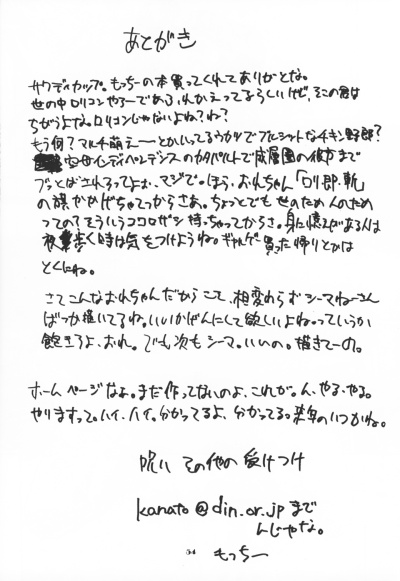 あとがき
サワディカップ。もっちーの本買ってくれてありがとな。
世の中ロリコンやろーであふれかえってるらしいけど、そこの君は
ちがうよな。ロリコンじゃないよね?ね?
もう何?マルチ萌え——とかいってるウカツでブルシットなチキン野郎?
空母インディペンデンスのカタパルトで成層圏の彼方まで
ブッとばされろってよぉ、マジで。ほら、おれちゃん「ロリ即斬」
の旗かかげちゃってっからさあ。ちょっとでも世のため人のため
っての?そういうココロザシ持っちゃってからさ。身に憶えがある人は
夜歩く時は気をつけようね。ギャルゲー買った帰りとかは
とくにね。
さてこんなおれちゃんだからこそ、相変わらずシーマねーさん
ばっか描いてるね。いいかげんにして欲しいよね。っていうか
飽きろよ、おれ。でも次もシーマ。いいの。描きてーの。
ホームページなぁ。まだ作ってないのよ、これが。ん、やる、やる。
やりますって。ハイ、ハイ。分かってるよ、分かってる。来年のいつかね。
呪い その他の受けつけ
kanato@din.or.jp まで
んじゃな。
54
もっちー